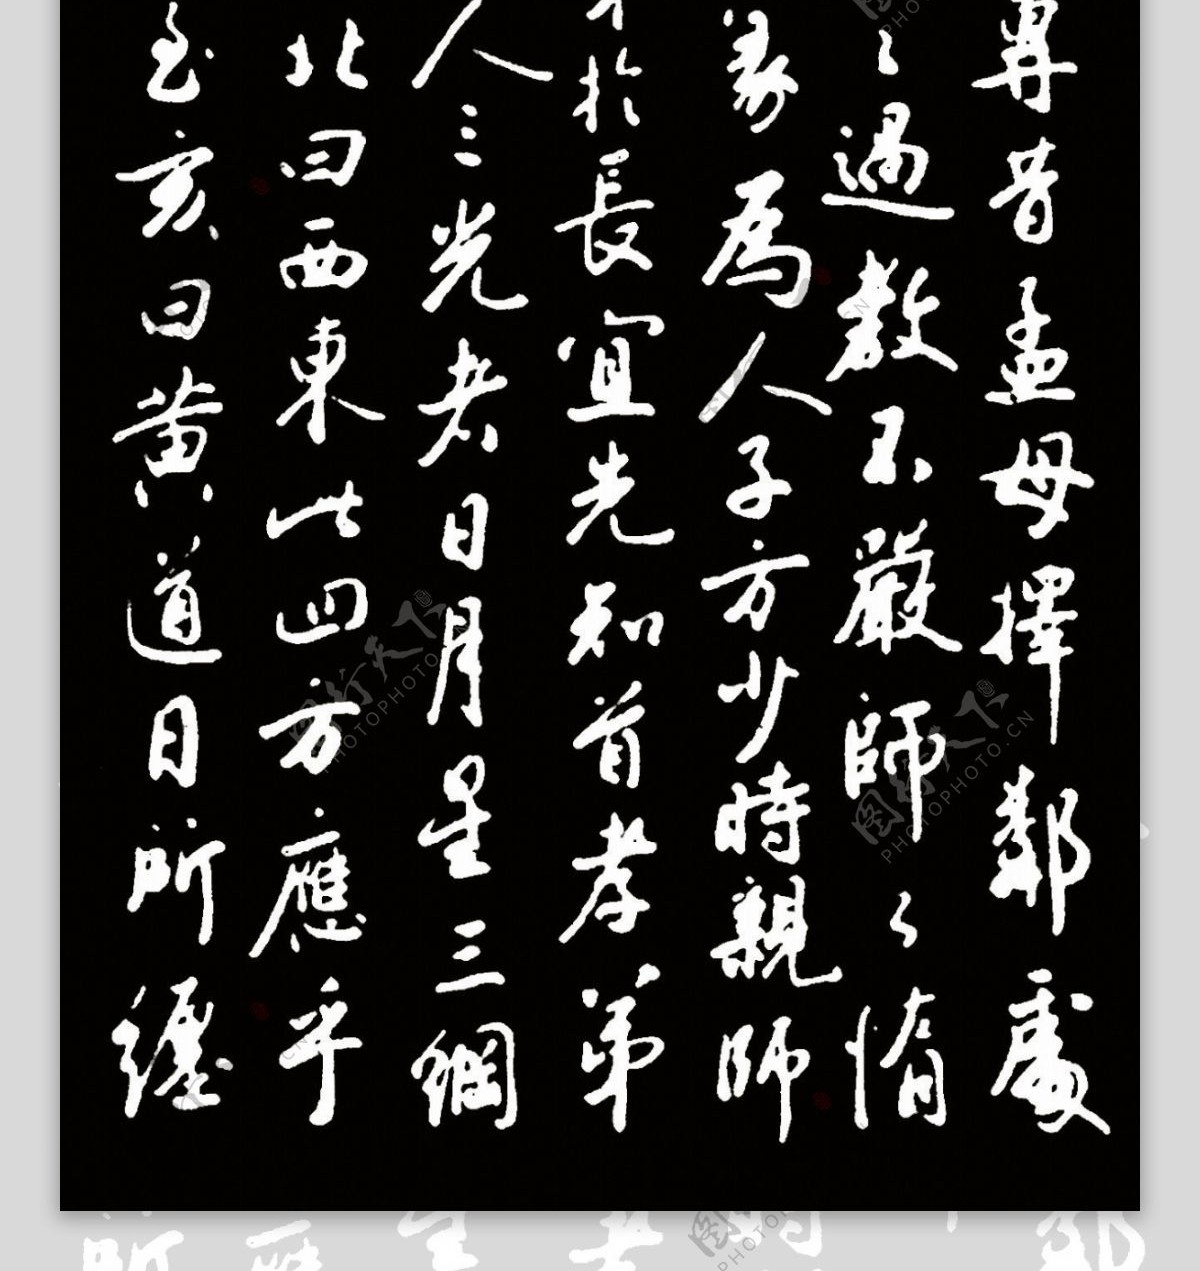 昔孟母擇鄰處
過教不嚴師之惰
義為人子方少時親師
於長宜先知首孝弟
人三光者日月星三綱
北曰西東此四方應乎
至亥曰黃道日所纏